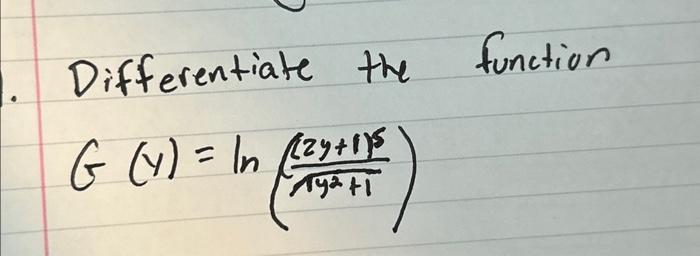 1. Differentiate the function
G (y) = ln ((2y+1)⁵/√y²+1)